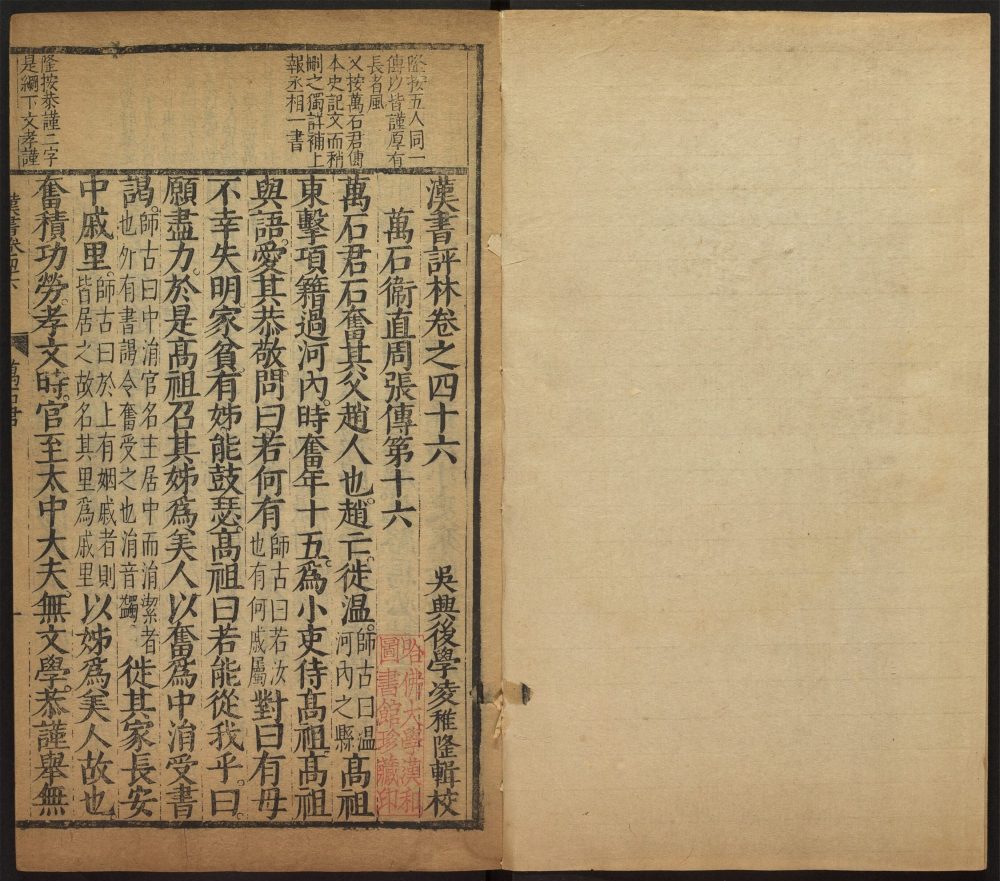 隆按五人同一
傳以皆謹厚有
長者風
又按萬石君傳
本史記文而稍
刪之獨詳補上
報丞相一書
隆按恭謹二字
是綱下文孝謹
漢書評林卷之四十六 吳興後學凌稚隆輯校
萬石衞直周張傳第十六
哈佛大學漢和
圖書館珍藏印
萬石君石奮其父趙人也。趙亡。徙温。師古曰温河內之縣高祖
東擊項籍過河內。時奮年十五。為小吏侍高祖。高祖
與語。愛其恭敬。問曰若何有師古曰若汝也有何戚屬對曰有母
不幸失明。家貧。有姊。能鼓瑟。高祖曰若能從我乎。曰
願盡力。於是高祖召其姊爲美人。以奮爲中涓受書
謁。師古曰中涓官名主居中而涓潔者也外有書謁令奮受之也涓音蠲徙其家長安
中戚里。師古曰於上有姻戚者則皆居之故名其里爲戚里以姊爲美人故也
奮積功勞。孝文時。官至太中大夫。無文學。恭謹舉無
萬石君
一